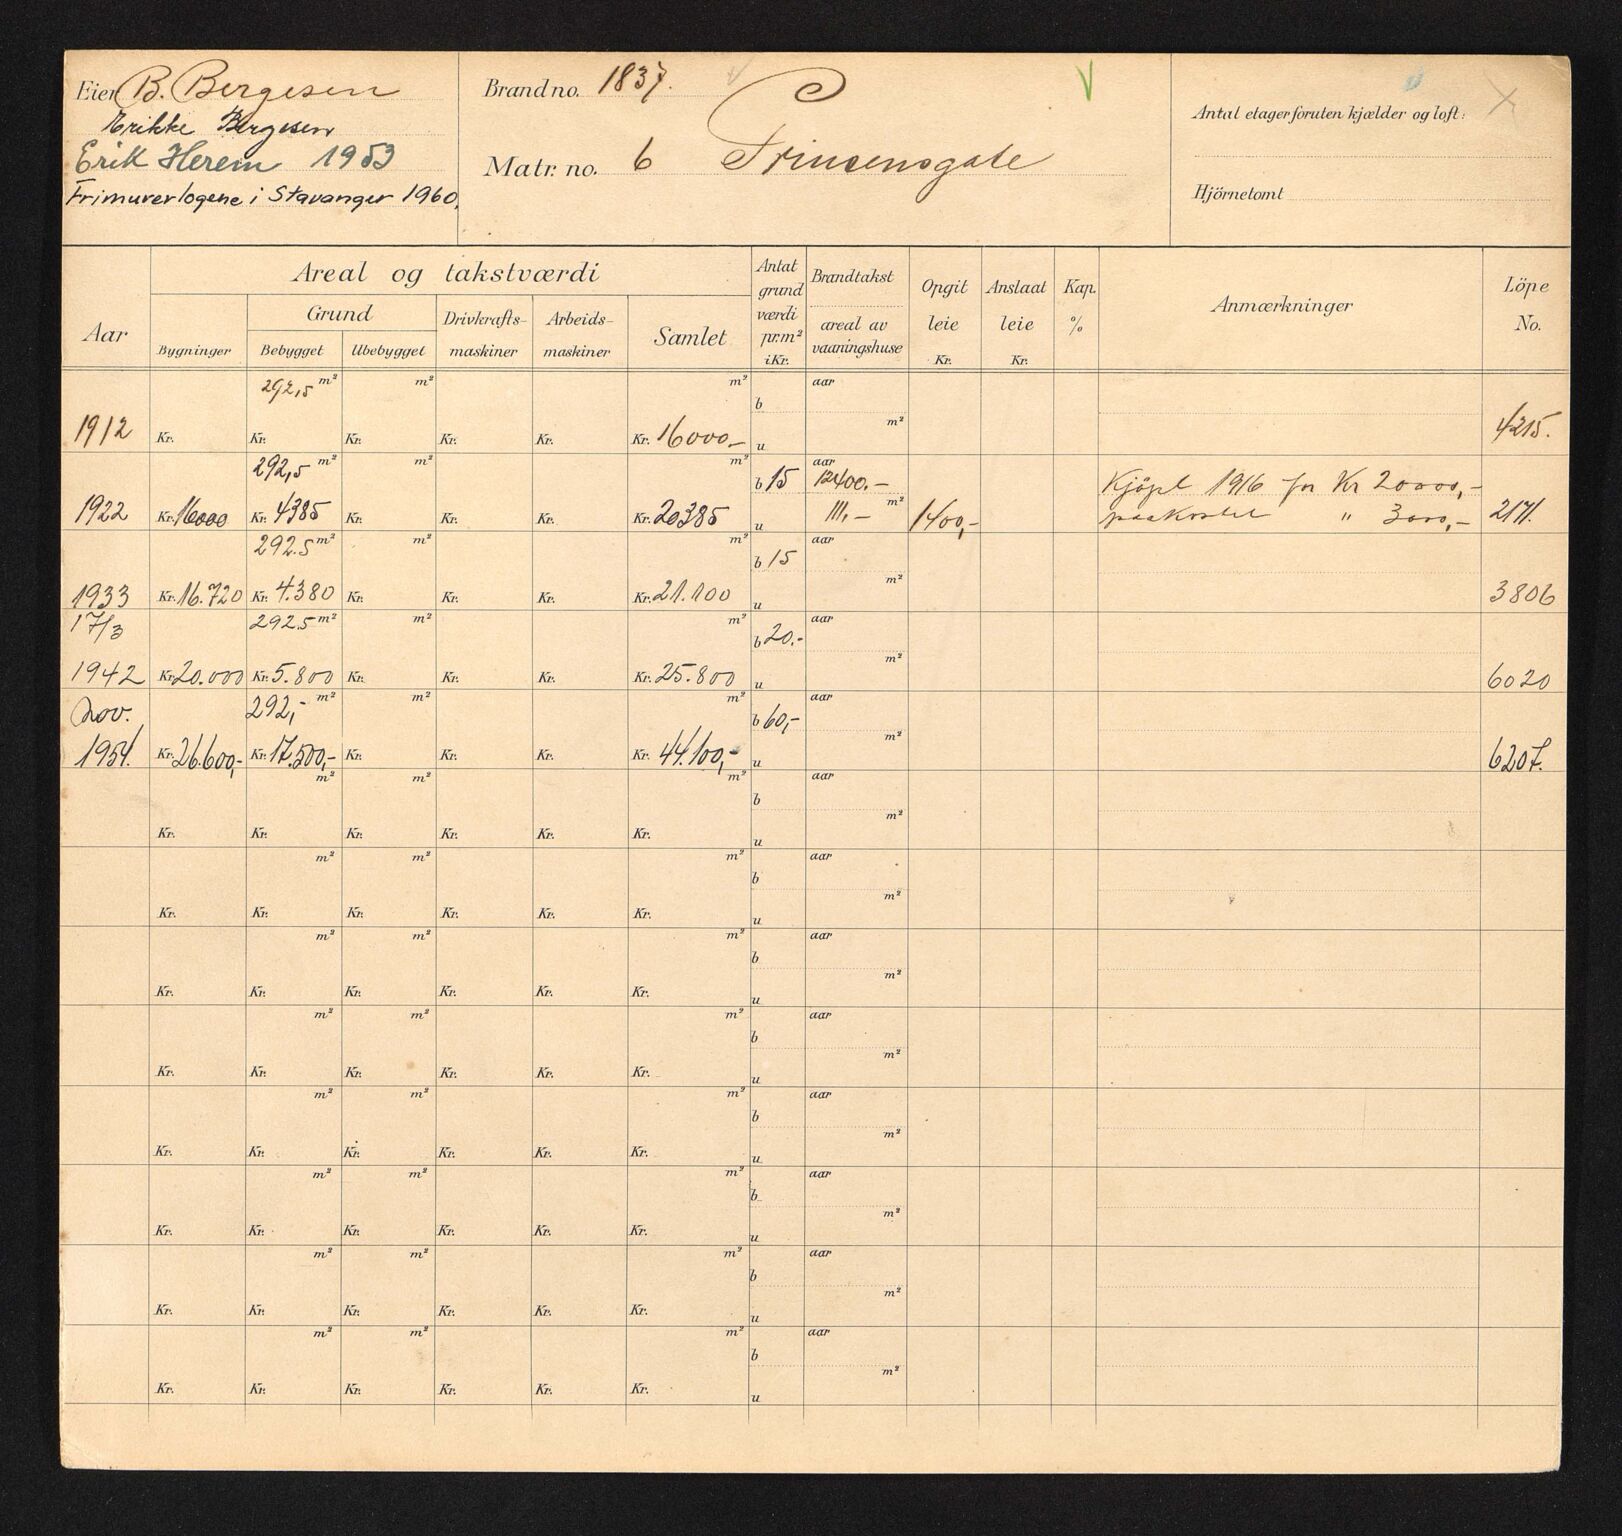 Eier B. Bergesen
Erikke Bergesen
Erik Herem 1953
Frimurerlogene i Stavanger 1960.
Brand no. 1837.
Matr. no. 6 Prinsensgate
Antal etager foruten kjælder og loft:
Hjörnetomt
Aar
Areal og takstværdi
Bygninger
Grund
Bebygget Ubebygget
Drivkrafts-
maskiner
Arbeids-
maskiner
Samlet
Antat
grund
værdi
pr. m²
i Kr.
Brandtakst
areal av
vaaningshuse
Opgit
leie
Kr.
Anslaat
leie
Kr.
Kap.
%
Anmærkninger
Löpe
No.
292,5 m² m² m² aar
b m²
1912 Kr. Kr. Kr. Kr. Kr. Kr. 16000,- u 4215.
292,5 m² m² m² b 15 aar 12400.- Kjöpt 1916 for Kr 20000,-
1922 Kr. 16000 Kr. 4385 Kr. Kr. Kr. Kr. 20385 u 111,- m² 1400,- paakostet " 3000,- 2171.
292.5 m² m² m² b 15 aar
m²
1933 Kr. 16.720 Kr. 4.380 Kr. Kr. Kr. Kr. 21.100 u 3806
17/3 292.5 m² m² m² b 20.- aar
m²
1942 Kr. 20.000 Kr. 5.800 Kr. Kr. Kr. Kr. 25.800 u 6020
Nov. 292,- m² m² m² b 60,- aar
m²
1954. Kr. 26.600,- Kr. 17.500,- Kr. Kr. Kr. Kr. 44.100,- u 6207.
m² m² m² aar
b m²
Kr. Kr. Kr. Kr. Kr. Kr. u
m² m² m² aar
b m²
Kr. Kr. Kr. Kr. Kr. Kr. u
m² m² m² aar
b m²
Kr. Kr. Kr. Kr. Kr. Kr. u
m² m² m² aar
b m²
Kr. Kr. Kr. Kr. Kr. Kr. u
m² m² m² aar
b m²
Kr. Kr. Kr. Kr. Kr. Kr. u
m² m² m² aar
b m²
Kr. Kr. Kr. Kr. Kr. Kr. u
m² m² m² aar
b m²
Kr. Kr. Kr. Kr. Kr. Kr. u
m² m² m² aar
b m²
Kr. Kr. Kr. Kr. Kr. Kr. u